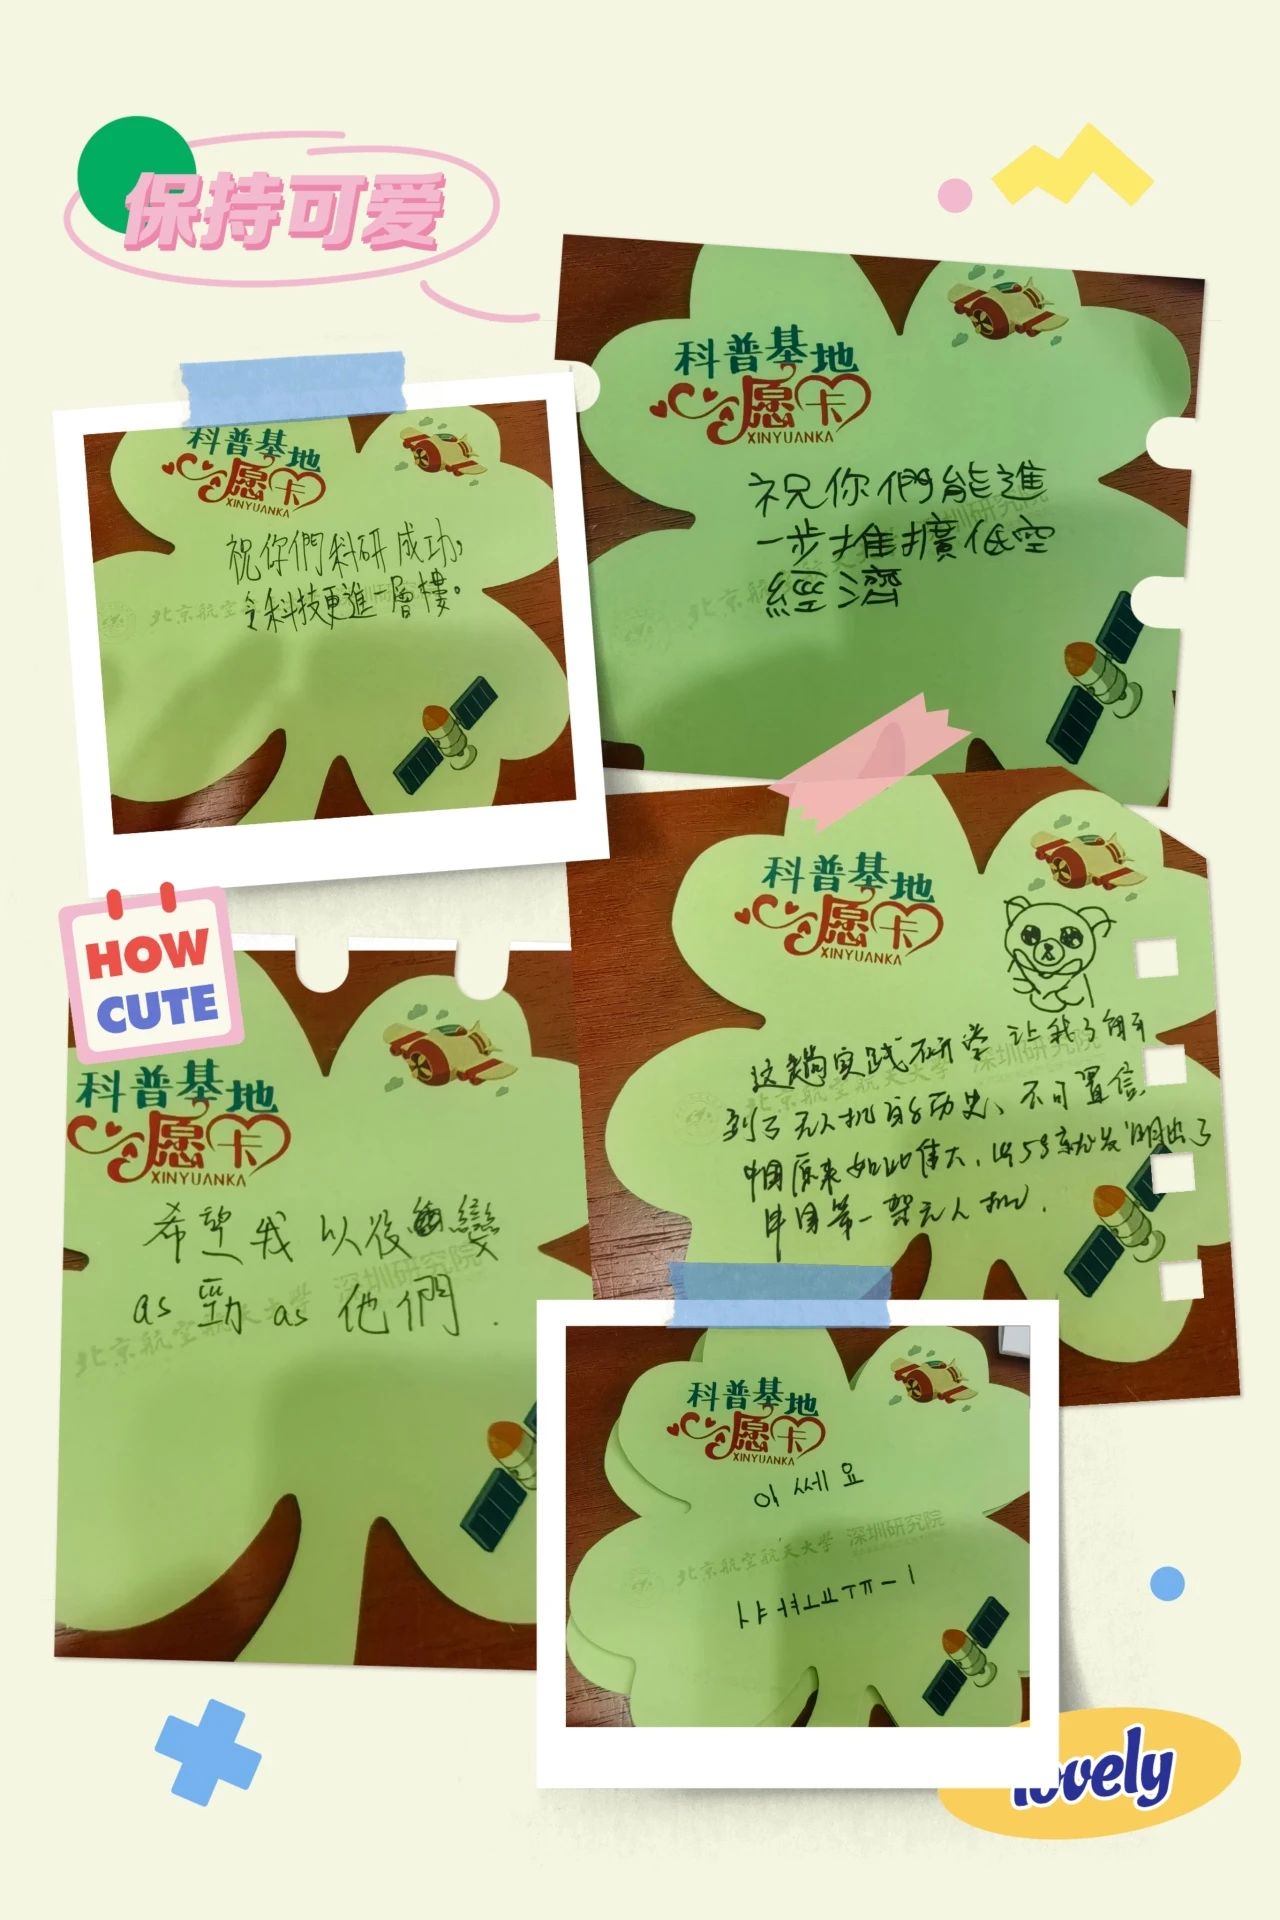 保持可爱
科普基地
心愿卡
XINYUANKA
祝你們科研成功,
令科技更進一層樓。
北京航空
深圳研究院
科普基地
心愿卡
XINYUANKA
祝你們能進
一步推擴低空
經濟
北京航空航天大学 深圳研究院
HOW
CUTE
科普基地
心愿卡
XINYUANKA
希望我以後變
as 勁 as 他們.
北京航空航天大学 深圳研究院
科普基地
心愿卡
XINYUANKA
这趟实践研学 让我了解
到了无人机的历史、不可置信
中国原来如此伟大, 1958就发明出了
中国第一架无人机.
北京航空航天大学 深圳研究院
科普基地
心愿卡
XINYUANKA
이 쎄 요
北京航空航天大学 深圳研究院
ㅏㅑㅓㅕㅗㅛㅜㅠㅡㅣ
lovely